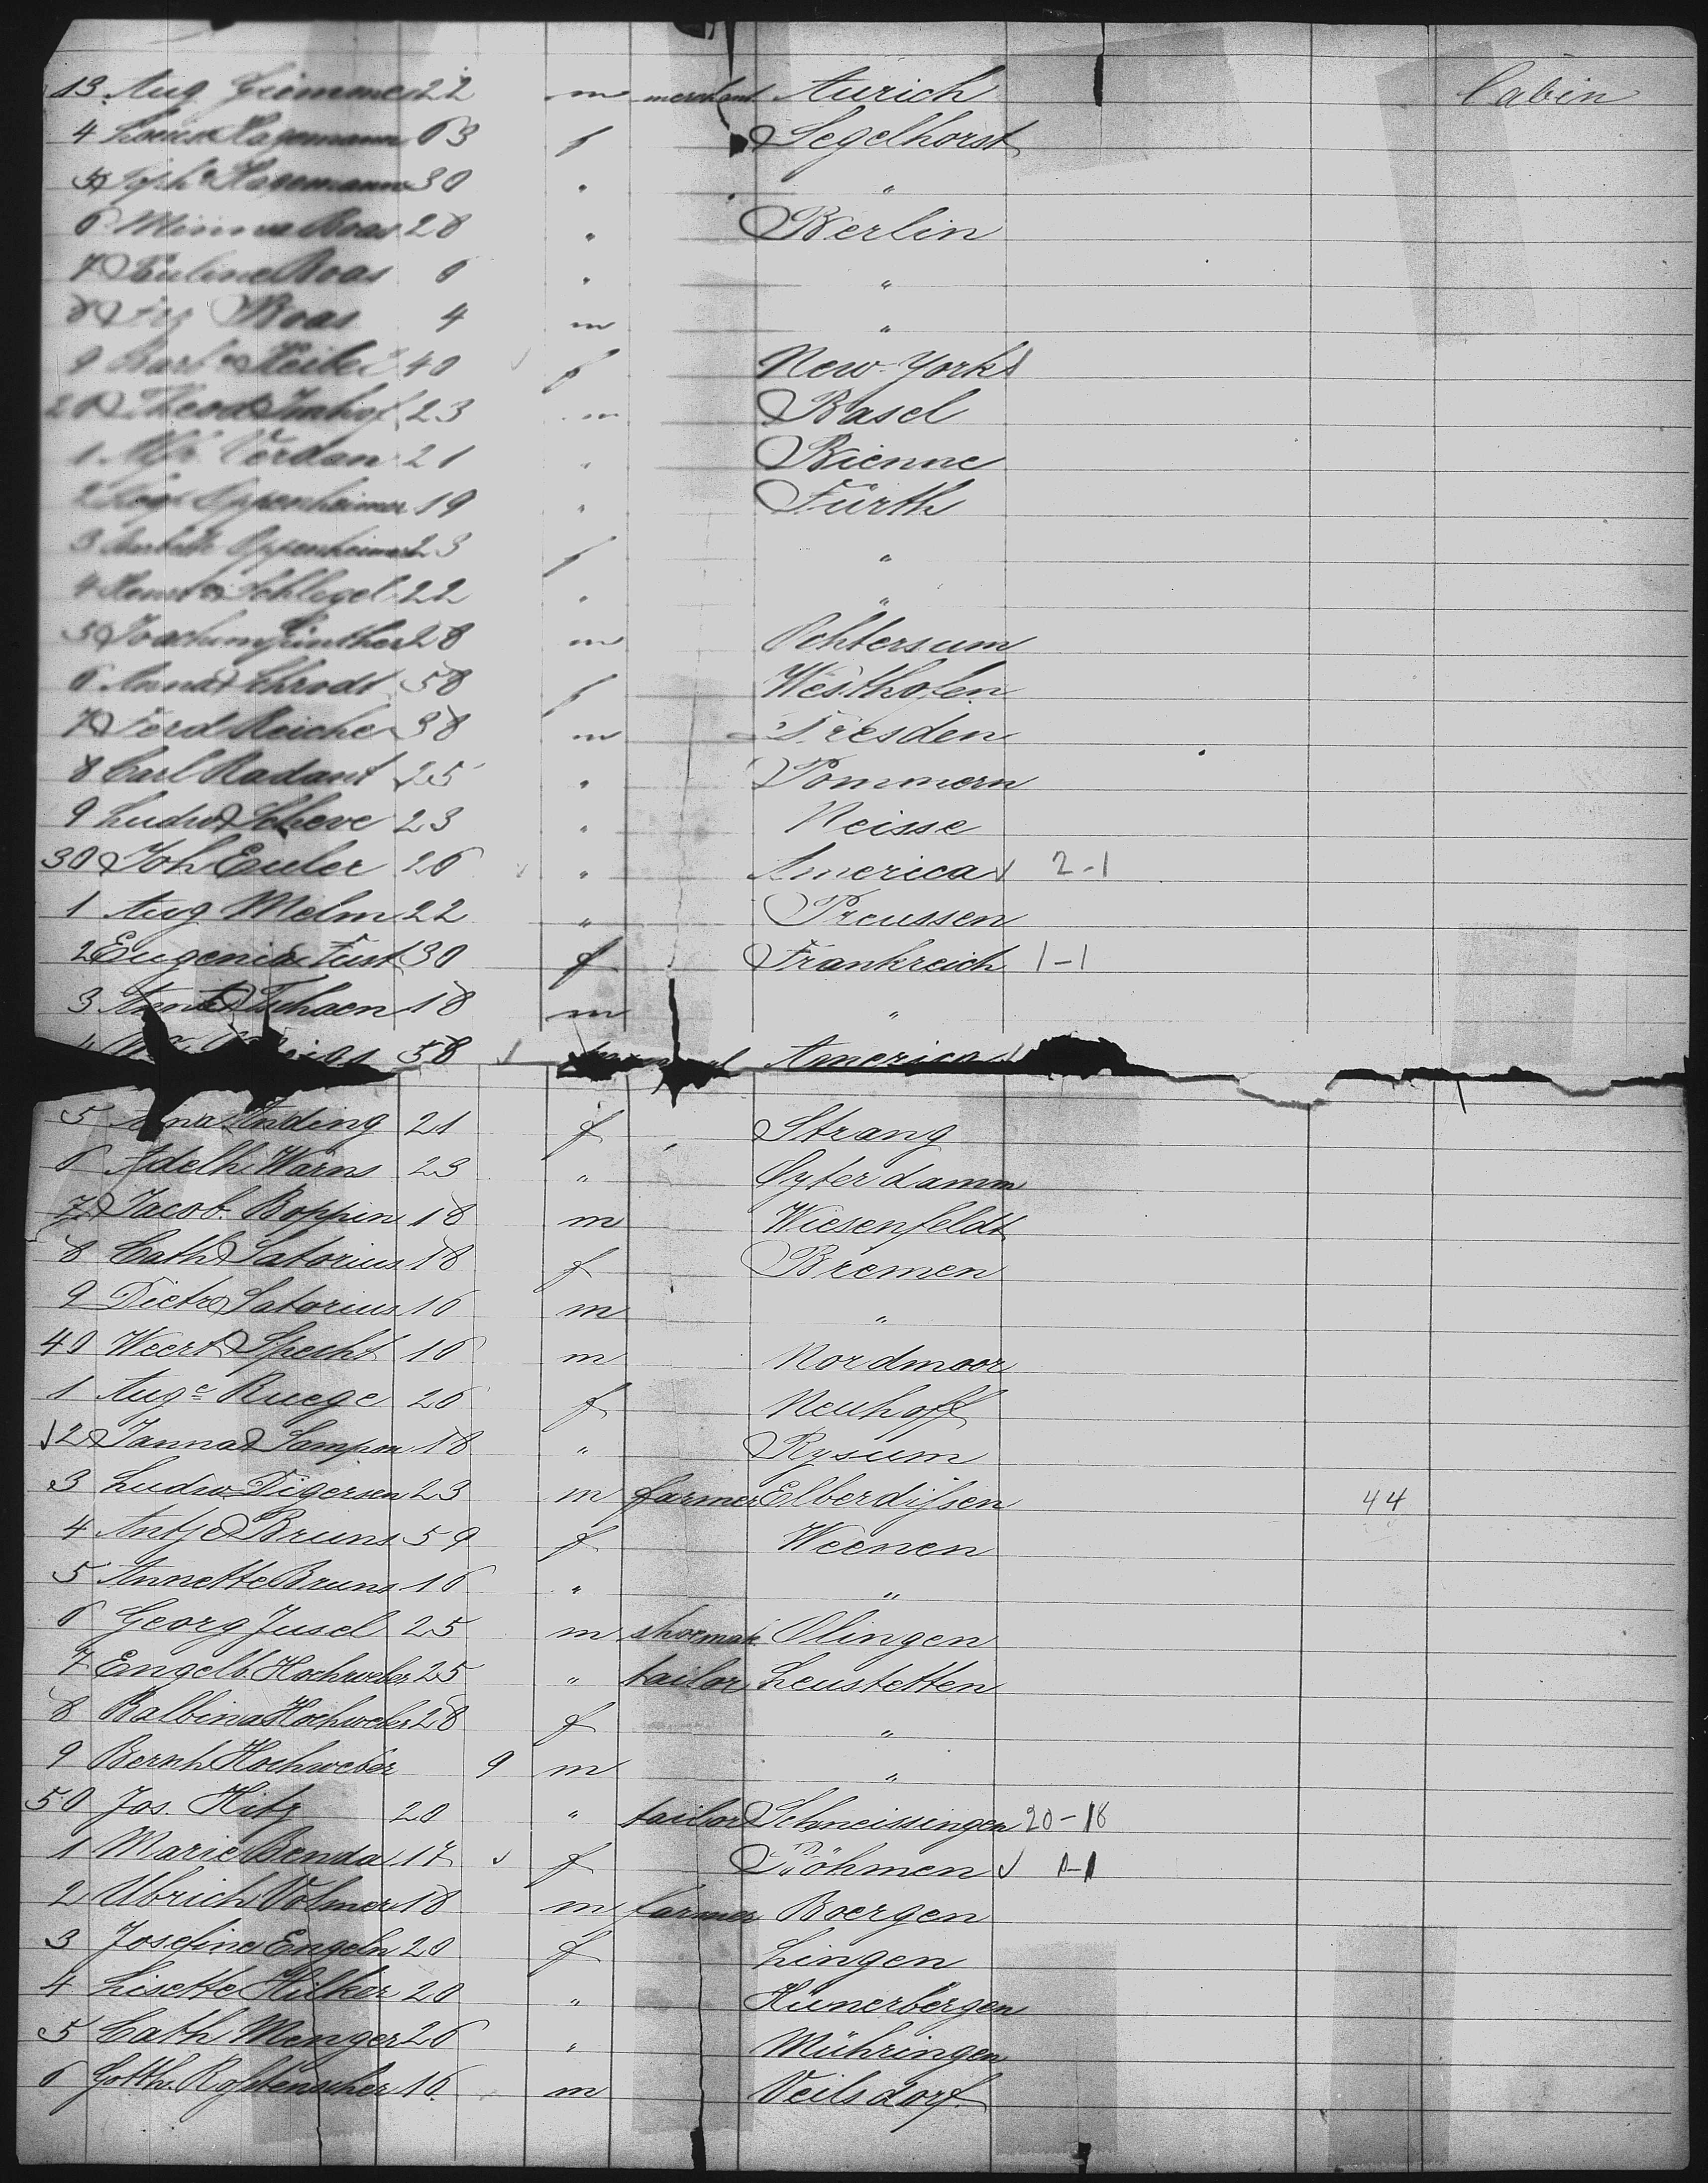 13 Aug 22 m merchant Aurich Cabin
4 Louise Hagemann 63 f Segelhorst
5 Soph Hagemann 30 " "
6 Minna Boas 28 " Berlin
7 Boas 6 " "
8 Boas 4 m "
9 Barb 40 f New-York
20 Theod Imhof 23 m Basel
1 Verdan 21 " Bienne
2 Oppenheimer 19 " Fürth
3 Babette Oppenheimer 23 f "
4 Schlegel 22 " "
5 Joachim Günther 28 m Ochtersum
6 Anna Schrodt 58 f Westhofen
7 Ferd Reiche 38 m Dresden
8 Carl Radant 25 " Pommern
9 Ludw Scheve 23 " Neisse
30 Joh Euler 26 " America 2-1
1 Aug Melm 22 " Preussen
2 Eugenie Fust 30 f Frankreich 1-1
3 18 m "
4 58 America
5 Anding 21 f Strang
6 Adelh Warns 23 " Oyterdamm
7 Jacob Boppin 18 m Wiesenfeldt
8 Cath Satorius 18 f Bremen
9 Dietr Satorius 16 m "
40 Weert Specht 16 m Nordmoor
1 Auge Ruege 26 f Neuhoff
2 Janna Sampon 18 " Rysum
3 Ludw Digersen 23 m farmer Elberdissen 44
4 Antje Bruns 59 f Weenen
5 Annette Bruns 16 " "
6 Georg Jusel 25 m shoemak Olingen
7 Engelb. Hochweber 25 " tailor Leustetten
8 Balbina Hochweber 28 f "
9 Bernh Hochweber 9 m "
50 Jos. Hitz 20 " tailor Schneissingen 20-18
1 Marie Benda 17 f Böhmen 1-1
2 Ulrich Volmer 18 m farmer Boergen
3 Josefine Engeln 20 f Lingen
4 Lisette Hilker 20 " Hünerbergen
5 Cath Menger 26 " Mühringen
6 Gotth. 16 m Veilsdorf